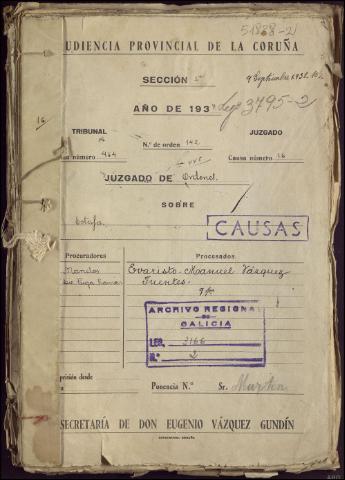 51838-2
UDIENCIA PROVINCIAL DE LA CORUÑA
SECCIÓN
9 Septiembre 1931
AÑO DE 193
Leg 3795-2
16
TRIBUNAL
JUZGADO
N.º de orden 142
número 464
Causa número 16
JUZGADO DE Ordenes.
SOBRE
estafa
CAUSAS
Procuradores
Procesados
Evaristo Manuel Vázquez
Fuentes
ARCHIVO REGIONAL
DE
GALICIA
LEG. 3166
N.º 2
prisión desde
Ponencia N.º
Sr. Martin
SECRETARÍA DE DON EUGENIO VÁZQUEZ GUNDÍN